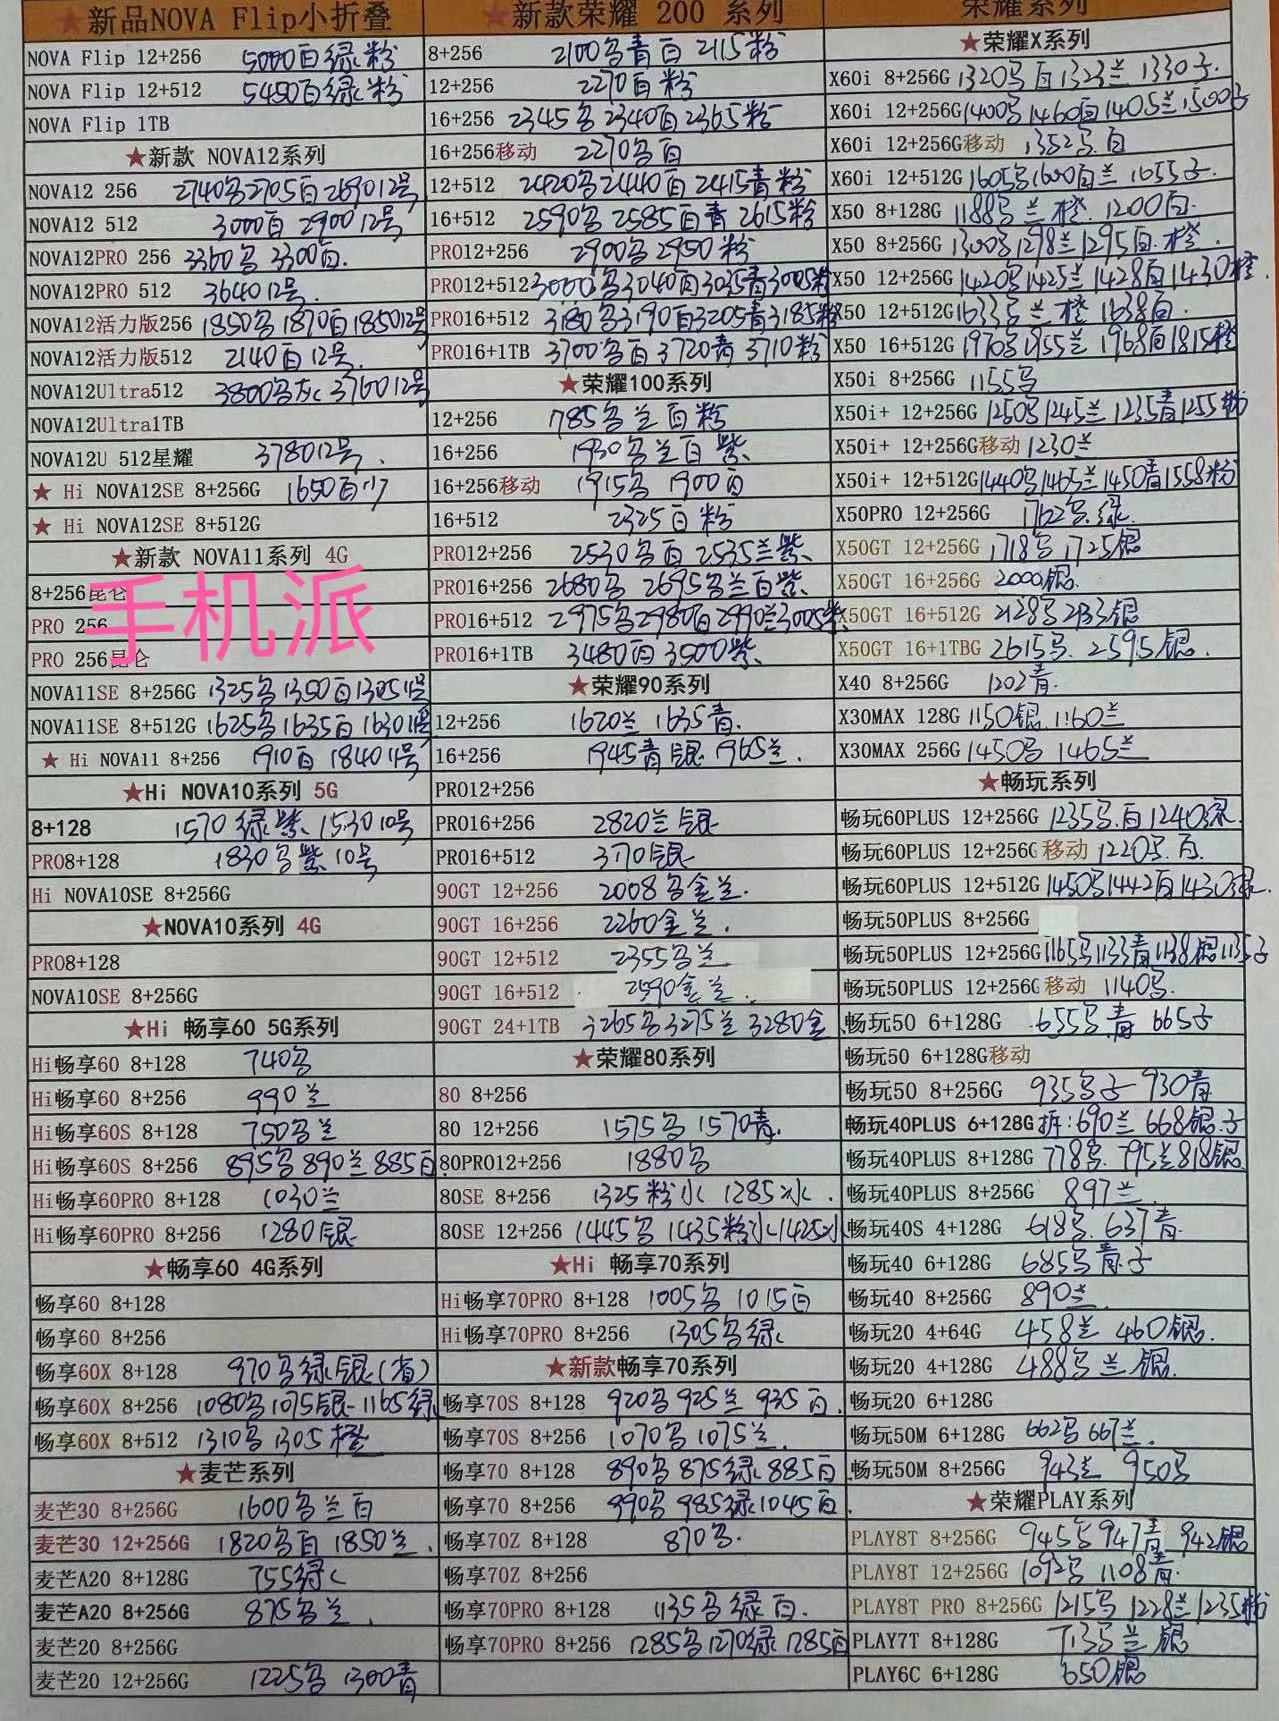 ★新品NOVA Flip小折叠
NOVA Flip 12+256 5000白绿粉
NOVA Flip 12+512 5450白绿粉
NOVA Flip 1TB
★新款 NOVA12系列
NOVA12 256 2740黑2705白2690 12号
NOVA12 512 3000白 2900 12号
NOVA12PRO 256 3360黑 3300白.
NOVA12PRO 512 3640 12号.
NOVA12活力版256 1850黑1870白1850 12号
NOVA12活力版512 2140白12号
NOVA12Ultra512 3800黑灰 3760 12号
NOVA12Ultra1TB
NOVA12U 512星耀 3780 12号.
★ Hi NOVA12SE 8+256G 1650白
★ Hi NOVA12SE 8+512G
★新款 NOVA11系列 4G
8+256昆仑
手机派
PRO 256
PRO 256昆仑
NOVA11SE 8+256G 1325黑1350白1305 11号
NOVA11SE 8+512G 1625黑1635白1630 11号
★ Hi NOVA11 8+256 1910白 1840 11号
★Hi NOVA10系列 5G
8+128 1570绿紫 1530 10号
PRO8+128 1830黑紫 10号
Hi NOVA10SE 8+256G
★NOVA10系列 4G
PRO8+128
NOVA10SE 8+256G
★Hi 畅享60 5G系列
Hi畅享60 8+128 740黑
Hi畅享60 8+256 990兰
Hi畅享60S 8+128 750黑兰
Hi畅享60S 8+256 895黑890兰885白
Hi畅享60PRO 8+128 1030兰
Hi畅享60PRO 8+256 1280银
★畅享60 4G系列
畅享60 8+128
畅享60 8+256
畅享60X 8+128 970黑绿银(省)
畅享60X 8+256 1080黑1075银1165绿
畅享60X 8+512 1310黑1305橙
★麦芒系列
麦芒30 8+256G 1600黑兰白
麦芒30 12+256G 1820黑白 1850兰.
麦芒A20 8+128G 755绿
麦芒A20 8+256G 875黑兰.
麦芒20 8+256G
麦芒20 12+256G 1225黑 1300青
★新款荣耀 200 系列
8+256 2100黑青白 2115粉
12+256 2270白粉
16+256 2345黑2340白2365粉
16+256移动 2270黑白
12+512 2420黑2440白2415青粉
16+512 2590黑2585白青2615粉
PRO12+256 2900黑2950粉
PRO12+512 3000黑3040白3035青3005粉
PRO16+512 3180黑3190白3205青3185粉
PRO16+1TB 3700黑白3720青3710粉
★荣耀100系列
12+256 1785黑兰白粉
16+256 1930黑兰白紫
16+256移动 1915黑 1900白
16+512 2325白粉
PRO12+256 2530黑白2535兰紫
PRO16+256 2680黑 2695黑兰白紫.
PRO16+512 2975黑2980白2990兰3005紫
PRO16+1TB 3480白3500紫
★荣耀90系列
12+256 1620兰 1635青.
16+256 1945青银1965兰.
PRO12+256
PRO16+256 2820兰银
PRO16+512 3170银
90GT 12+256 2008黑金兰.
90GT 16+256 2260金兰.
90GT 12+512 2355黑兰
90GT 16+512 2590金兰.
90GT 24+1TB 3265黑3275兰3280金
★荣耀80系列
80 8+256
80 12+256 1575黑1570青.
80PRO12+256 1880黑
80SE 8+256 1325粉水 1285冰.
80SE 12+256 1445黑1435粉水1425冰
★Hi 畅享70系列
Hi畅享70PRO 8+128 1005黑 1015白
Hi畅享70PRO 8+256 1305黑绿
★新款畅享70系列
畅享70S 8+128 920黑925兰 935白.
畅享70S 8+256 1070黑1075兰.
畅享70 8+128 890黑875绿885白
畅享70 8+256 990黑985绿1045白
畅享70Z 8+128 870黑.
畅享70Z 8+256
畅享70PRO 8+128 1135黑绿白.
畅享70PRO 8+256 1285黑1270绿1285白
荣耀系列
★荣耀X系列
X60i 8+256G 1320黑白1323兰1330子.
X60i 12+256G 1400黑1460白1405兰1500子
X60i 12+256G移动 1352黑.白
X60i 12+512G 1605黑1600白兰 1655子.
X50 8+128G 1188黑兰橙.1200白.
X50 8+256G 1300黑1298兰1295白.橙.
X50 12+256G 1420黑1425兰1428白1430橙.
X50 12+512G 1633黑兰橙1638白.
X50 16+512G 1970黑1955兰1968白1815橙
X50i 8+256G 1155黑
X50i+ 12+256G 1250黑1245兰1235青1255粉
X50i+ 12+256G移动 1230兰
X50i+ 12+512G 1440黑1465兰1450青1558粉
X50PRO 12+256G 1762黑.绿.
X50GT 12+256G 1718黑1725银
X50GT 16+256G 2000银.
X50GT 16+512G 2128黑2133银
X50GT 16+1TBG 2615黑.2595银.
X40 8+256G 1202青.
X30MAX 128G 1150银.1160兰
X30MAX 256G 1450黑1465兰
★畅玩系列
畅玩60PLUS 12+256G 1235黑.白1240绿.
畅玩60PLUS 12+256G 移动 1220黑.白.
畅玩60PLUS 12+512G 1450黑1442白1430绿.
畅玩50PLUS 8+256G
畅玩50PLUS 12+256G 1165黑1133青1138银1135子
畅玩50PLUS 12+256G 移动 1140黑.
畅玩50 6+128G 655黑.青 665子
畅玩50 6+128G移动
畅玩50 8+256G 935黑子 930青
畅玩40PLUS 6+128G 拆:690兰 668银.子
畅玩40PLUS 8+128G 778黑.795兰818银
畅玩40PLUS 8+256G 897兰.
畅玩40S 4+128G 618黑.637青.
畅玩40 6+128G 685黑青.子
畅玩40 8+256G 890兰.
畅玩20 4+64G 458兰 460银.
畅玩20 4+128G 488黑兰银.
畅玩20 6+128G
畅玩50M 6+128G 662黑667兰.
畅玩50M 8+256G 943兰 950黑
★荣耀PLAY系列
PLAY8T 8+256G 945黑947青 942银
PLAY8T 12+256G 1092黑 1108青.
PLAY8T PRO 8+256G 1215黑1228兰1235粉
PLAY7T 8+128G 735兰 银
PLAY6C 6+128G 650银